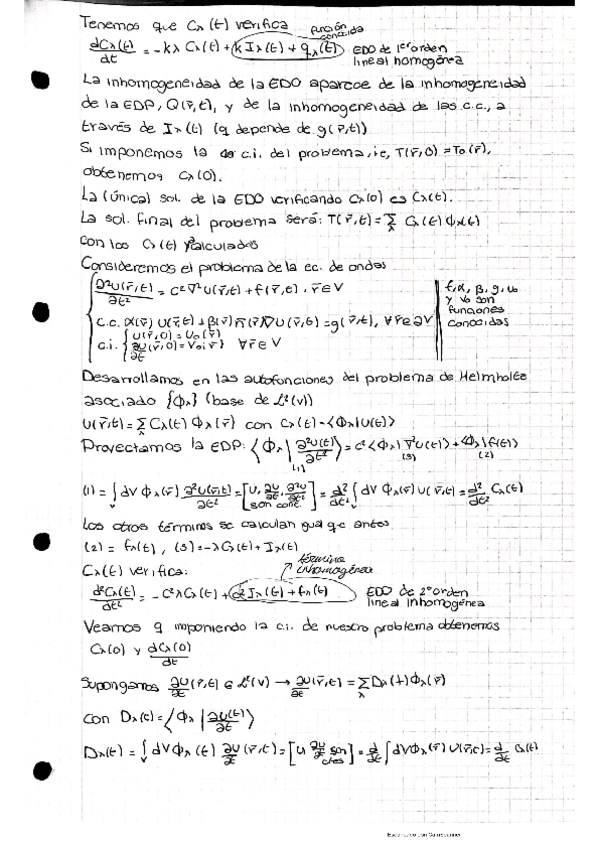 Tenemos que Cλ(t) verifica
función conocida
dCλ(t)/dt = -kλ Cλ(t) + k Iλ(t) + qλ(t) EDO de 1er orden lineal homogénea
La inhomogeneidad de la EDO aparece de la inhomogeneidad
de la EDP, Q(r̄,t), y de la inhomogeneidad de las c.c., a
través de Iλ(t) (q depende de g(r̄,t))
Si imponemos la c.i. del problema, i.e, T(r̄,0) = To(r̄),
obtenemos Cλ(0).
La (única) sol. de la EDO verificando Cλ(0) es Cλ(t).
La sol. final del problema será: T(r̄,t) = Σλ Cλ(t) Φλ(r̄)
con los Cλ(t) calculados
Consideremos el problema de la ec. de ondas
∂²U(r̄,t)/∂t² = c² ∇²U(r̄,t) + f(r̄,t), r̄ ∈ V
c.c. α(r̄) U(r̄,t) + β(r̄) n̄(r̄) ∇U(r̄,t) = g(r̄,t), ∀r̄ ∈ ∂V
c.i. { U(r̄,0) = Uo(r̄)
∂U(r̄,0)/∂t = Vo(r̄) ∀r̄ ∈ V
f, α, β, g, uo
y vo son
funciones
conocidas
Desarrollamos en las autofunciones del problema de Helmholtz
asociado {Φλ} (base de L²(V))
U(r̄,t) = Σλ Cλ(t) Φλ(r̄) con Cλ(t) = <Φλ|U(t)>
Proyectamos la EDP: <Φλ|∂²U(t)/∂t²> = c² <Φλ|∇²U(t)> + <Φλ|f(t)>
(1) (3) (2)
(1) = ∫v dV Φλ(r̄) ∂²U(r̄,t)/∂t² = [U, ∂U/∂t, ∂²U/∂t² son cont.] = d²/dt² ∫v dV Φλ(r̄) U(r̄,t) = d²/dt² Cλ(t)
Los otros términos se calculan igual qe antes
(2) = fλ(t), (3) = -λCλ(t) + Iλ(t)
Cλ(t) verifica:
término inhomogéneo
d²Cλ(t)/dt² = -c²λCλ(t) + c² Iλ(t) + fλ(t) EDO de 2º orden lineal inhomogénea
Veamos q imponiendo la c.i. de nuestro problema obtenemos
Cλ(0) y dCλ(0)/dt
Supongamos ∂U/∂t(r̄,t) ∈ L²(V) → ∂U/∂t(r̄,t) = Σλ Dλ(t) Φλ(r̄)
con Dλ(t) = <Φλ|∂U(t)/∂t>
Dλ(t) = ∫v dV Φλ(t) ∂U/∂t(r̄,t) = [U ∂U/∂t son ctes] = d/dt ∫ dV Φλ(r̄) U(r̄,t) = d/dt Cλ(t)
Escaneado con CamScanner